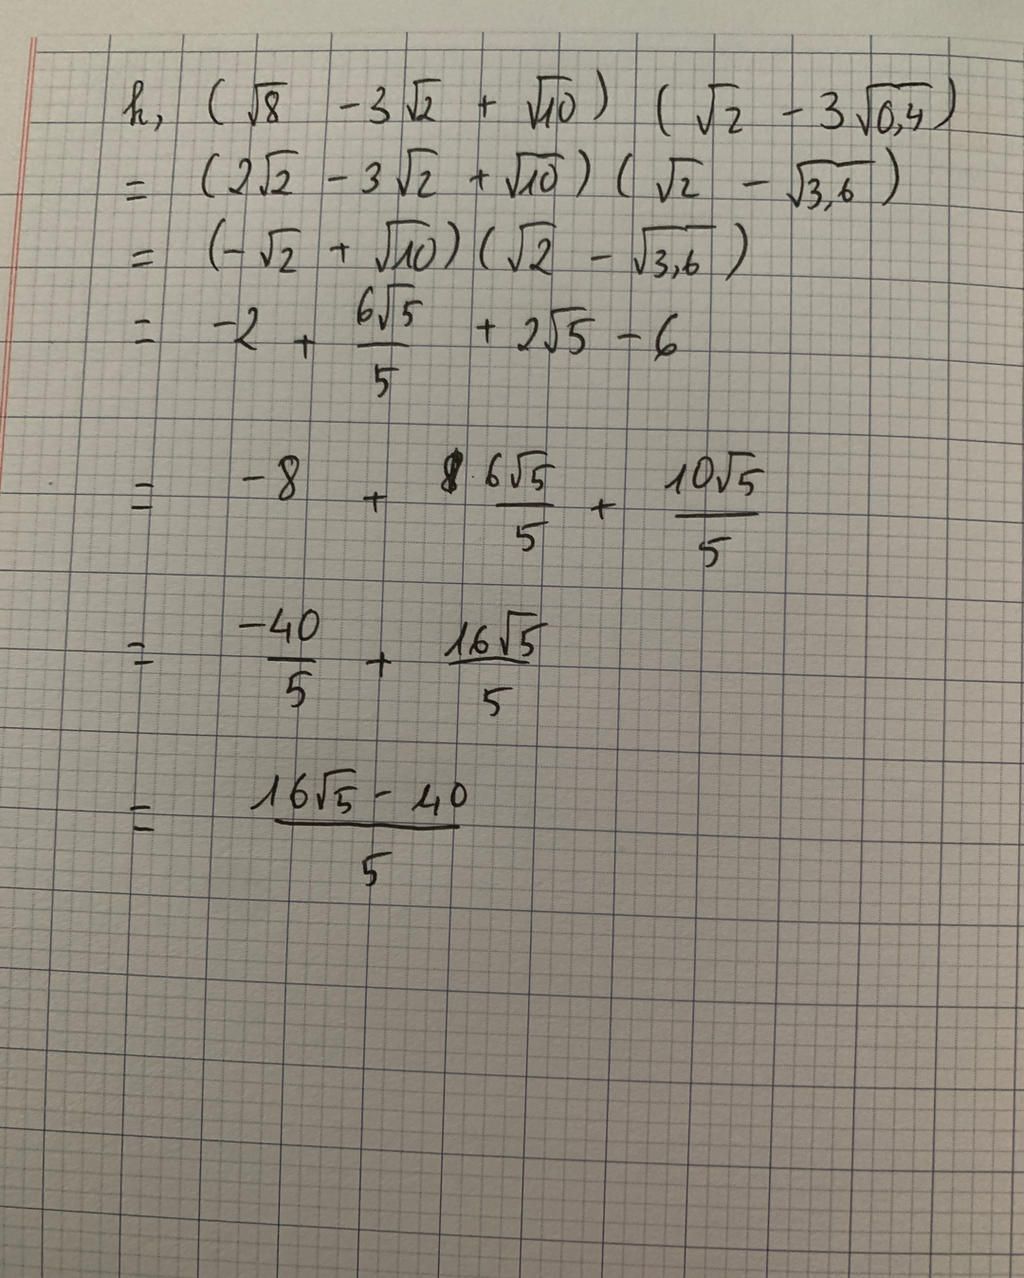 h, (√8 - 3√2 + √10) (√2 - 3√0,4)
= (2√2 - 3√2 + √10) (√2 - √3,6)
= (-√2 + √10) (√2 - √3,6)
= -2 + 6√5/5 + 2√5 - 6
= -8 + 6√5/5 + 10√5/5
= -40/5 + 16√5/5
= (16√5 - 40)/5